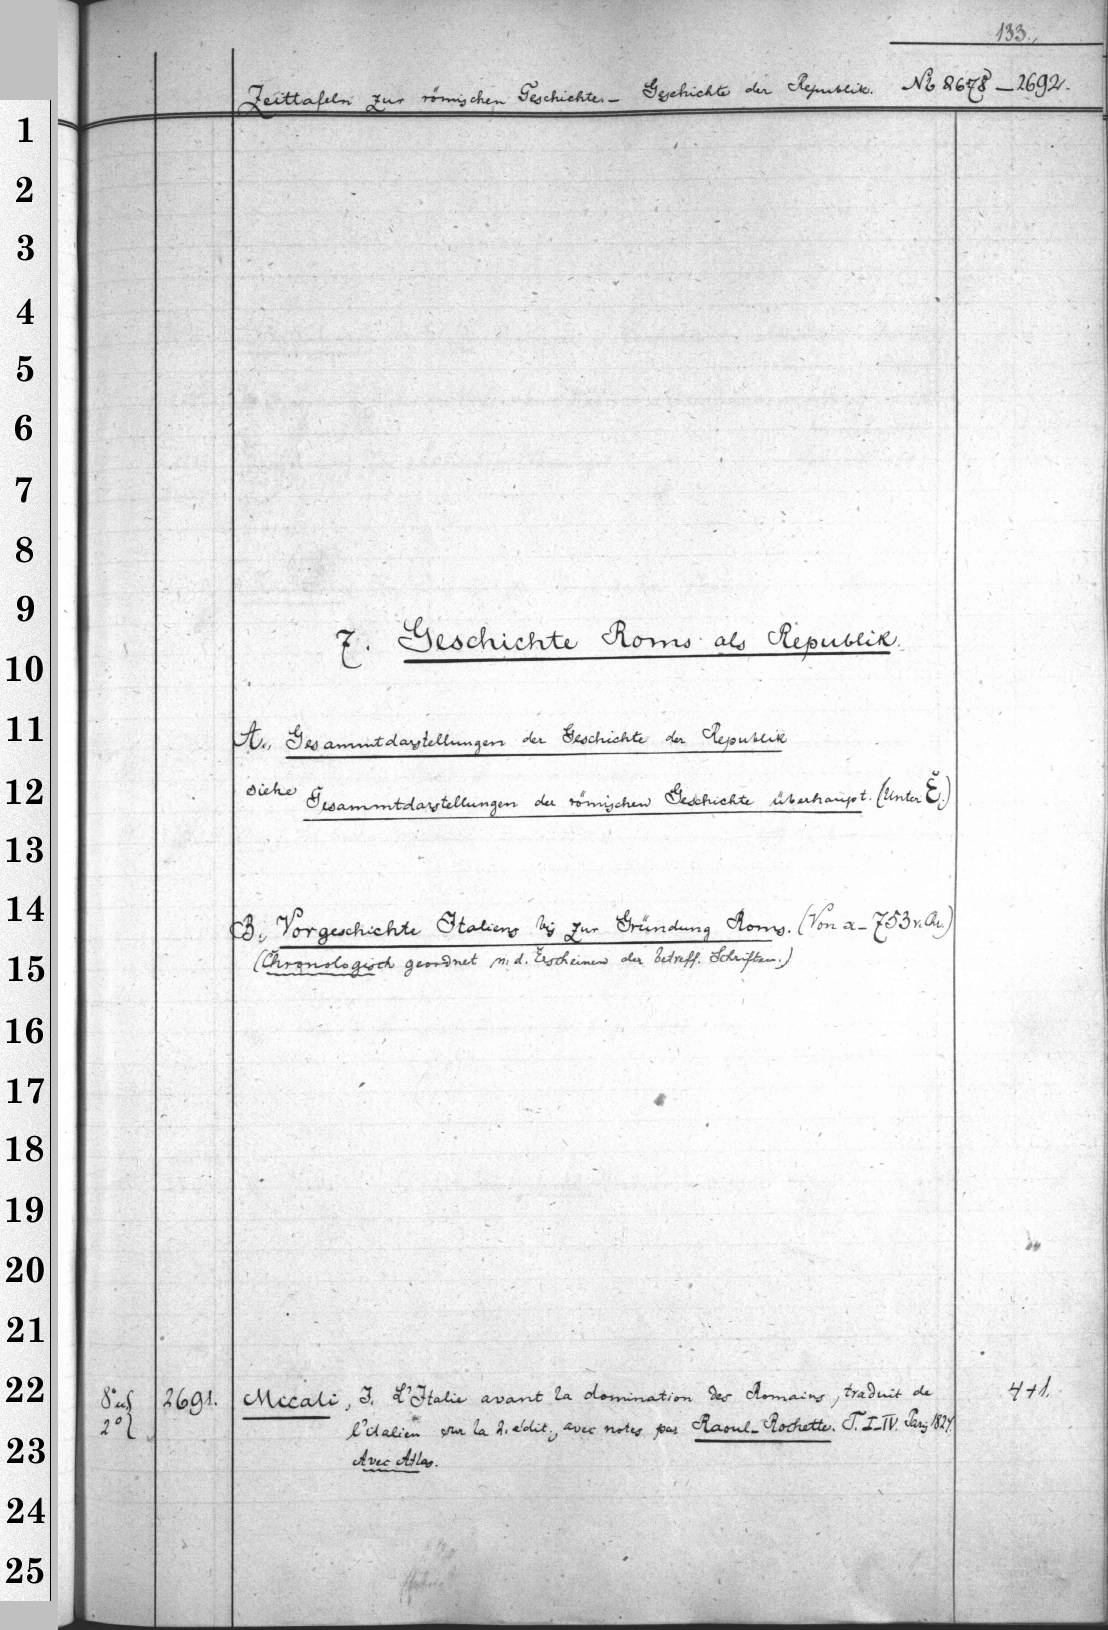 133.
Zeittafeln zur römischen Geschichte – Geschichte der Republik. No 2678 – 2692.
1
2
3
4
5
6
7
8
9
7. Geschichte Roms als Republik.
10
11 A., Gesammtdarstellungen der Geschichte der Republik
12 siehe Gesammtdarstellungen der römischen Geschichte überhaupt. (Unter E.)
13
14 B., Vorgeschichte Italiens bis zur Gründung Roms. (Von x – 753 v. Chr.)
15 (Chronologisch geordnet n. d. Erscheinen der betreff. Schriften.)
16
17
18
19
20
21
22 8° u. 2691. Micali, J. L'Italie avant la domination des Romains, traduit de 4+1.
2° l'italien sur la 2. edit., avec notes par Raoul-Rochette. T. I–IV. Paris 1824.
23 Avec Atlas.
24
25